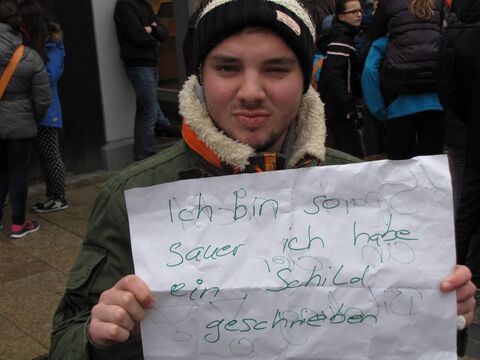 Ich bin so
sauer ich habe
ein Schild
geschrieben